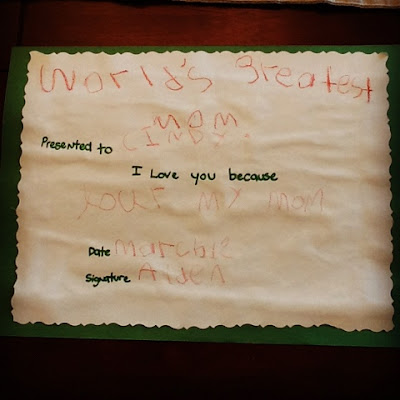 World's greatest
mom
Presented to CINDY
I Love you because
your my mom
Date
Signature Aiden